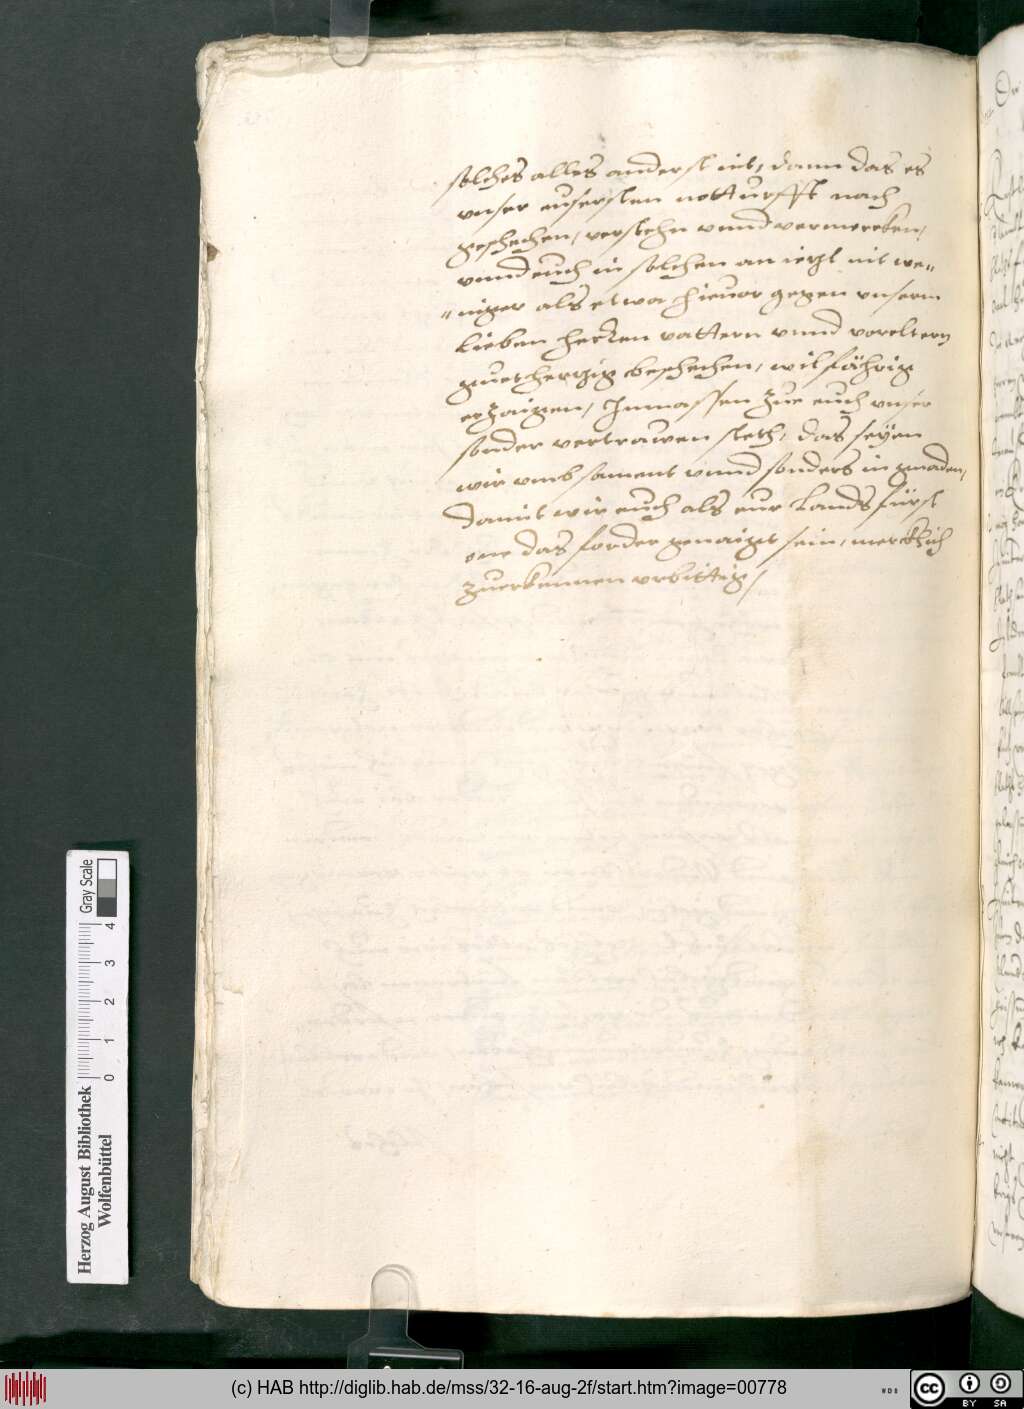 solches alles anderst nit, dann das es
vnser eusersten notturfft nach
geschehen, verstehn vnnd vermercken,
vnnd euch in solchen an iezt nit we=
=niger als etwa hieuor gegen vnserm
lieben herren vattern vnnd voreltern
guetherzig beschehen, wilfährig
erzaigen, Inmassen zue euch vnser
sonder vertrawen steth, das seyen
wir vmb sament vnnd sonders in gnaden,
damit wir euch als eur Landsfürst
one das forder genaigt sein, mercklich
zuerkennen vrbittig,
Herzog August Bibliothek
Wolfenbüttel
0 1 2 3 4
Gray Scale
(c) HAB http://diglib.hab.de/mss/32-16-aug-2f/start.htm?image=00778
WDB
CC BY SA